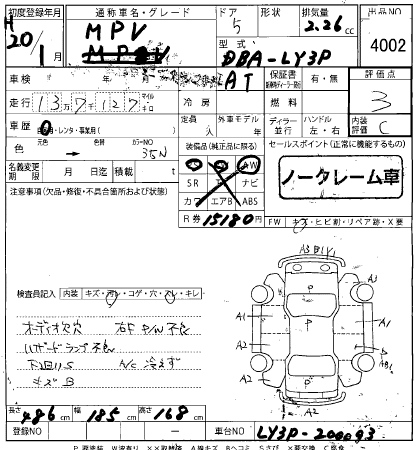 初度登録年月 通称車名・グレード ドア 形状 排気量 出品NO
H20/1月 MPV 5 2.26cc 4002
型式 DBA-LY3P
車検 年 月 LAT 保証書 有・無 評価点
走行 13万7千127 マイル キロ 冷房 燃料 3
車歴 自家用・レンタ・事業用( ) 定員 人 外車モデル 年 ディーラー 並行 ハンドル 左・右 内装評価 C
色 → 色替 カラーNO 35N 装備品(純正品に限る) セールスポイント(正常に機能するもの)
名義変更期限 月 日迄 積載 t AW
SR ナビ ノークレーム車
注意事項(欠品・修復・不具合箇所および状態) カワ エアB ABS
R券 15180円 FW キズ・ヒビ割・リペア跡・X要
検査員記入 内装 キズ・汚レ・コゲ・穴・スレ・キレ
オーディオ欠穴 右F P/W不良
ハザードランプ不良
A/C 冷えず
キズ B
A3 B1V
A3
A1 P A1
A2 P A2
A2
長さ 486cm 幅 185cm 高さ 168cm
登録NO ― 車台NO LY3P-200093